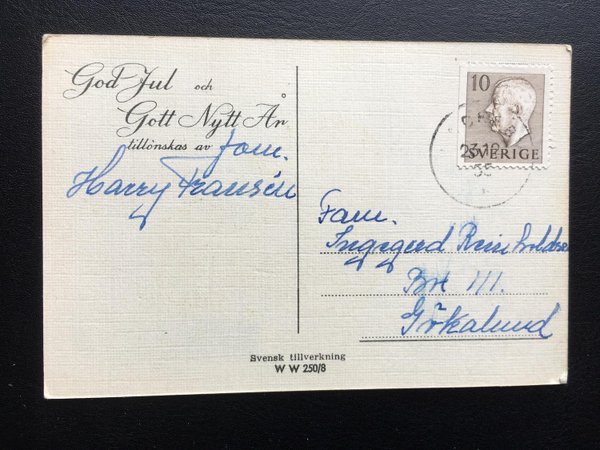 God Jul och
Gott Nytt År
tillönskas av fam.
Harry Fransén
10
SVERIGE
23.12
55
Fam.
Ingegerd Reinholdsen
Box 111.
Gökalund
Svensk tillverkning
W W 250/8